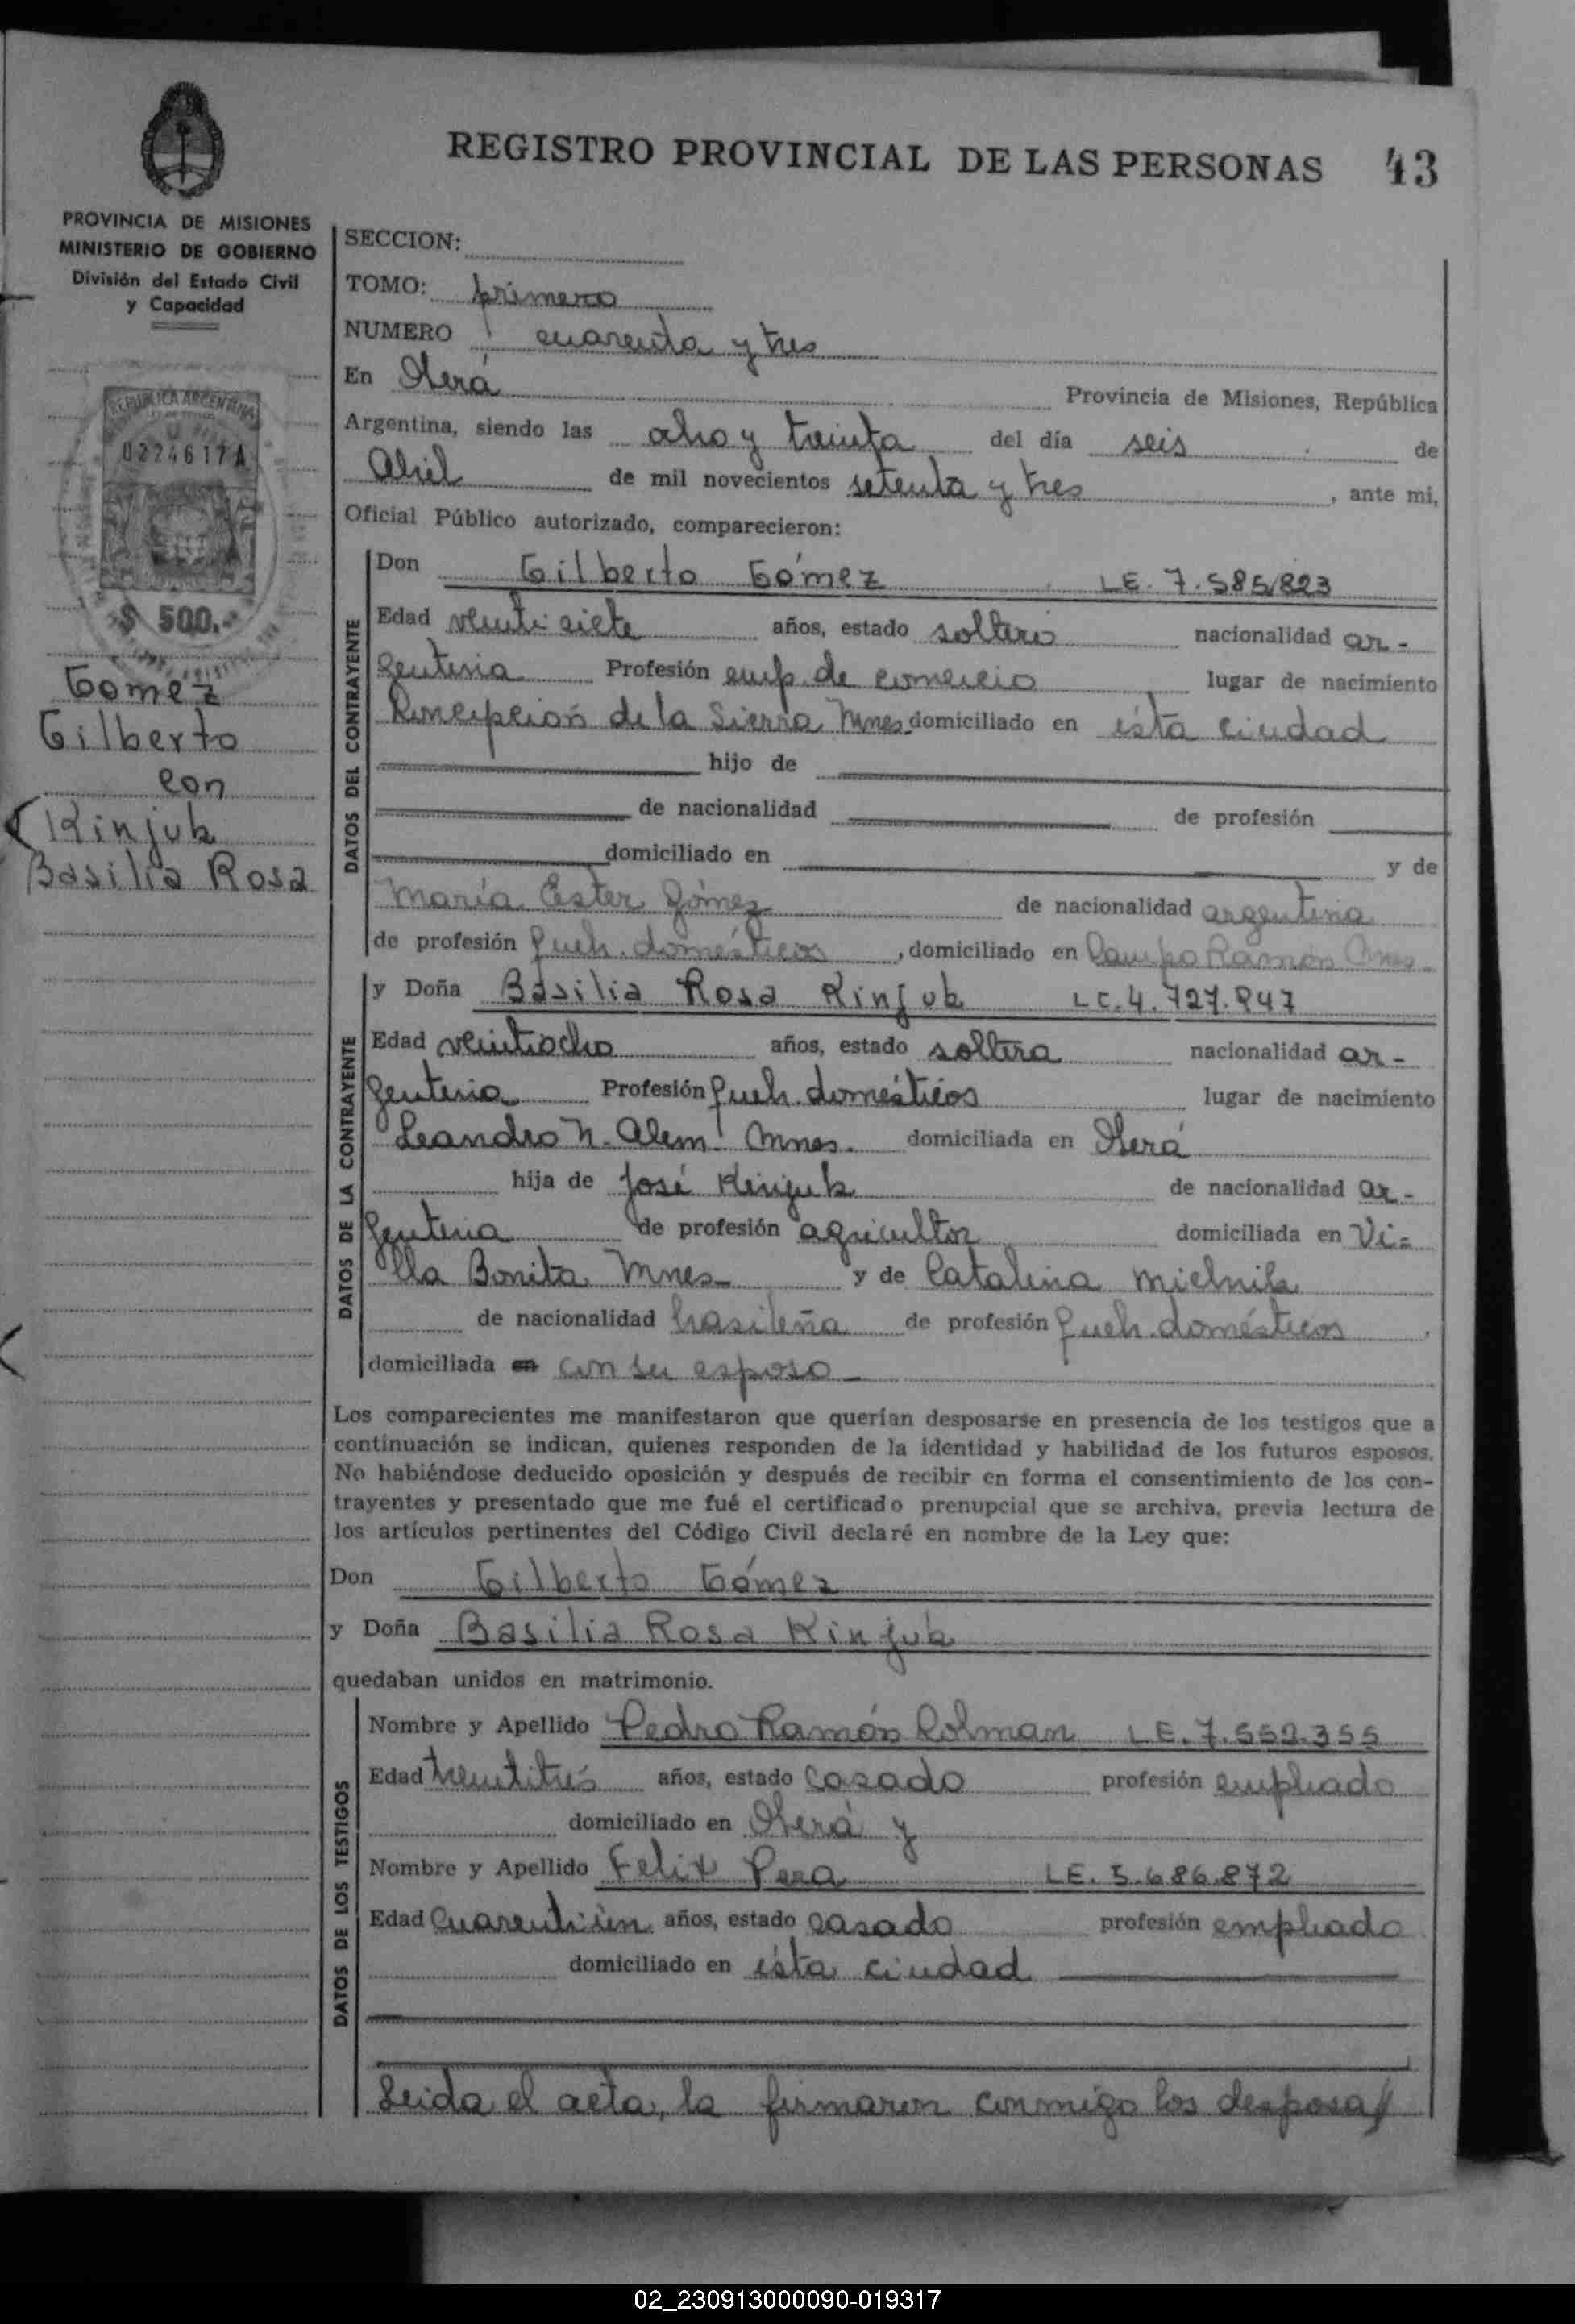 REGISTRO PROVINCIAL DE LAS PERSONAS 43
PROVINCIA DE MISIONES
MINISTERIO DE GOBIERNO
División del Estado Civil
y Capacidad
REPUBLICA ARGENTINA
0224617A
$ 500.-
Gomez
Gilberto
con
Kinjuk
Basilia Rosa
SECCION:
TOMO: primero
NUMERO cuarenta y tres
En Oberá Provincia de Misiones, República
Argentina, siendo las ocho y treinta del día seis de
Abril de mil novecientos setenta y tres, ante mi,
Oficial Público autorizado, comparecieron:
DATOS DEL CONTRAYENTE
Don Gilberto Gómez LE. 7.585/823
Edad veintisiete años, estado soltero nacionalidad ar-
gentina Profesión emp. de comercio lugar de nacimiento
Concepción de la Sierra Mnes. domiciliado en ésta ciudad
hijo de
de nacionalidad de profesión
domiciliado en y de
María Ester Gómez de nacionalidad argentina
de profesión queh. domésticos, domiciliado en Campo Ramón Mnes.
DATOS DE LA CONTRAYENTE
y Doña Basilia Rosa Kinjuk LC. 4.727.947
Edad veintiocho años, estado soltera nacionalidad ar-
gentina Profesión queh. domésticos lugar de nacimiento
Leandro N. Alem Mnes. domiciliada en Oberá
hija de José Kinjuk de nacionalidad ar-
gentina de profesión agricultor domiciliada en Vi=
lla Bonita Mnes- y de Catalina Mielnik
de nacionalidad brasileña de profesión queh domésticos,
domiciliada en con su esposo-
Los comparecientes me manifestaron que querían desposarse en presencia de los testigos que a
continuación se indican, quienes responden de la identidad y habilidad de los futuros esposos.
No habiéndose deducido oposición y después de recibir en forma el consentimiento de los con-
trayentes y presentado que me fué el certificado prenupcial que se archiva, previa lectura de
los artículos pertinentes del Código Civil declaré en nombre de la Ley que:
Don Gilberto Gómez
y Doña Basilia Rosa Kinjuk
quedaban unidos en matrimonio.
DATOS DE LOS TESTIGOS
Nombre y Apellido Pedro Ramón Colman LE. 7.552.355
Edad treintitrés años, estado casado profesión empleado
domiciliado en Oberá y
Nombre y Apellido Felix Pera LE. 5.686.872
Edad Cuarentiún años, estado casado profesión empleado
domiciliado en ésta ciudad
Leida el acta, la firmaron conmigo los desposa//
02_230913000090-019317